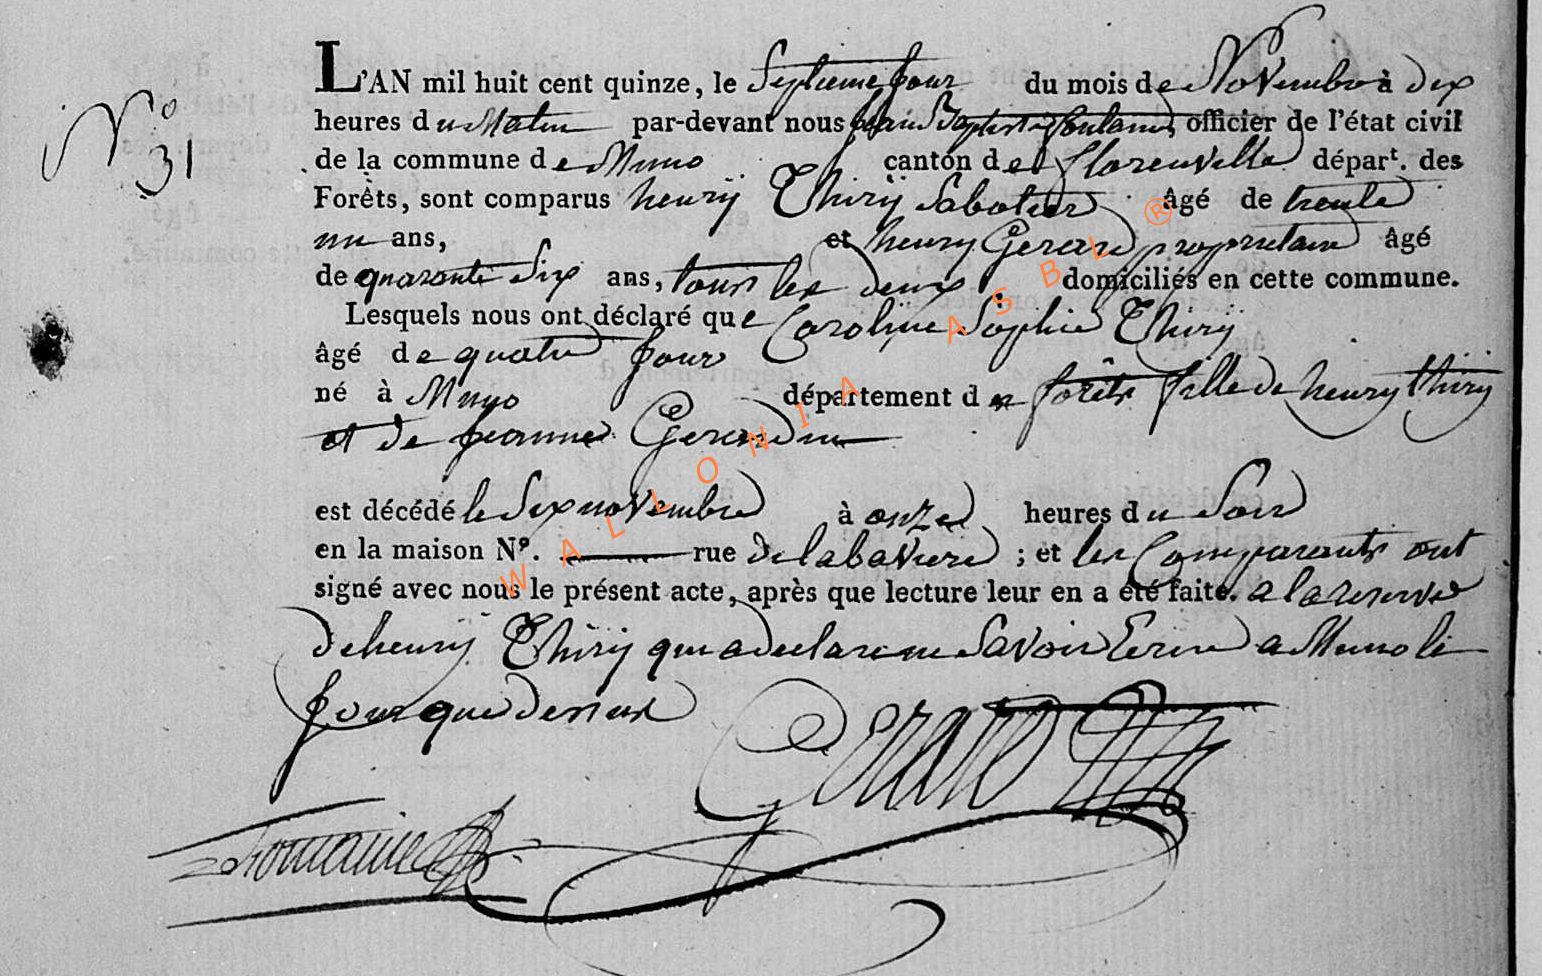 N.º 31
L'AN mil huit cent quinze, le Septieme jour du mois de Novembre à dix
heures du Matin par-devant nous jean Baptiste fontaine officier de l'état civil
de la commune de Muno canton de florenville départ. des
Forêts, sont comparus henrÿ ThirÿSabotier âgé de trente
un ans, et henry Gerard proprietaire âgé
de quarante Six ans, tous les deux domiciliés en cette commune.
Lesquels nous ont déclaré que Caroline Sophie Thirÿ
âgé de quatre jour
né à Muno département des forêts fille de henry thiry
et de jeanne Gerardin
est décédé le Six novembre à onze heures du Soir
en la maison Nº. rue de la baviere ; et les Comparants ont
signé avec nous le présent acte, après que lecture leur en a été faite. a la reserve
de henrÿ Thirÿ qui a declare ne Savoir Ecrire a Muno le
jour que dessus
Gerard
fontaine
WALLONIA ASBL ®